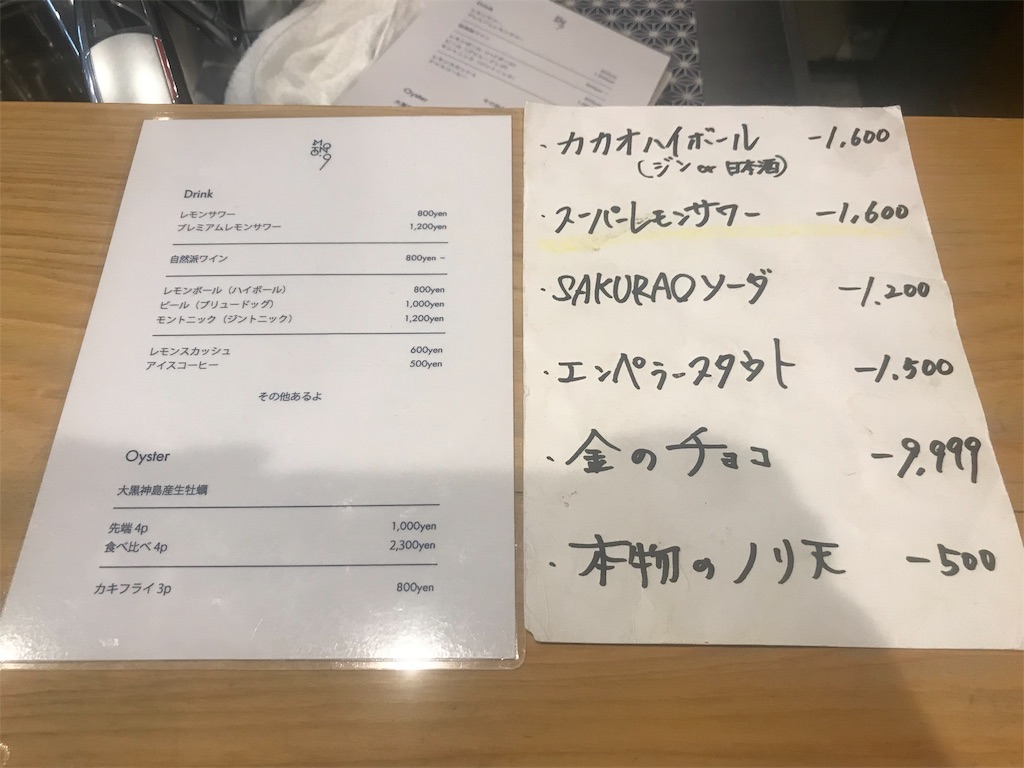 Drink
レモンサワー 800yen
プレミアムレモンサワー 1,200yen
自然派ワイン 800yen ~
レモンボール（ハイボール） 800yen
ビール（ブリュードッグ） 1,000yen
モントニック（ジントニック） 1,200yen
レモンスカッシュ 600yen
アイスコーヒー 500yen
その他あるよ
Oyster
大黒神島産生牡蠣
先端 4p 1,000yen
食べ比べ 4p 2,300yen
カキフライ 3p 800yen
・カカオハイボール -1.600
(ジン or 日本酒)
・スーパーレモンサワー -1.600
・SAKURAOソーダ -1.200
・エンペラースタウト -1.500
・金のチョコ -9.999
・本物のノリ天 -500
Drink
Oyster